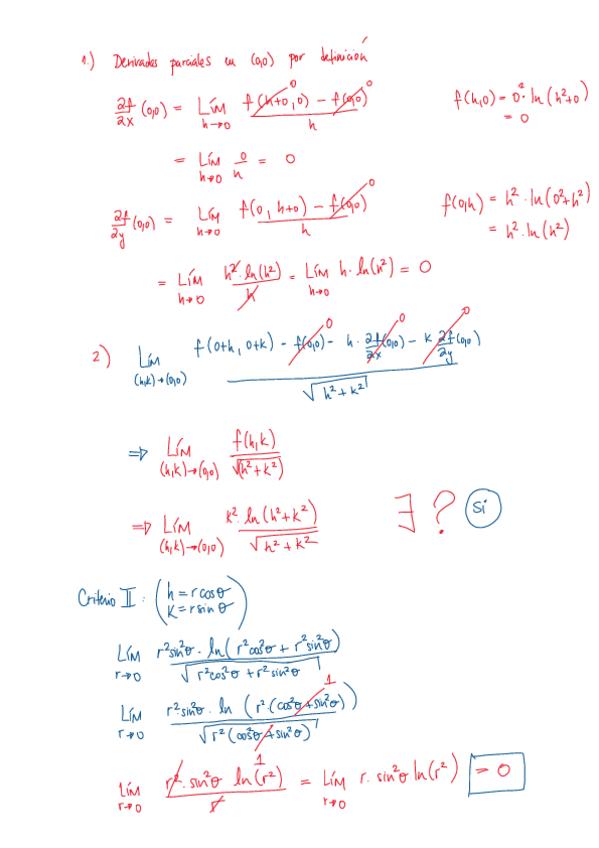 1.) Derivadas parciales en (0,0) por definición
∂f/∂x (0,0) = Lím h→0 (f(h+0,0) - f(0,0))/h 0 0 f(h,0) = 0². ln(h²+0)
= 0
= Lím h→0 0/h = 0
∂f/∂y (0,0) = Lím h→0 (f(0, h+0) - f(0,0))/h 0 f(0,h) = h². ln(0²+h²)
= h². ln(h²)
= Lím h→0 (h². ln(h²))/h = Lím h→0 h. ln(h²) = 0
2) Lím (h,k)→(0,0) (f(0+h, 0+k) - f(0,0) - h. ∂f/∂x (0,0) - k ∂f/∂y (0,0))/√(h²+k²) 0 0 0
⇒ Lím (h,k)→(0,0) f(h,k)/√(h²+k²)
⇒ Lím (h,k)→(0,0) (k². ln(h²+k²))/√(h²+k²) ∃ ? Sí
Criterio II: (h = r cosθ
k = r sinθ)
Lím r→0 (r²sin²θ. ln(r²cos²θ + r²sin²θ))/√(r²cos²θ + r²sin²θ)
Lím r→0 (r².sin²θ. ln(r².(cos²θ+sin²θ)))/√(r²(cos²θ+sin²θ)) 1 1
Lím r→0 (r². sin²θ ln(r²))/r = Lím r→0 r. sin²θ ln(r²) = 0